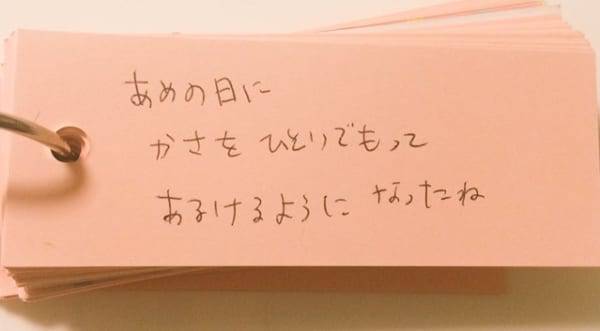 あめの日に
かさを ひとりでもって
あるけるように なったね